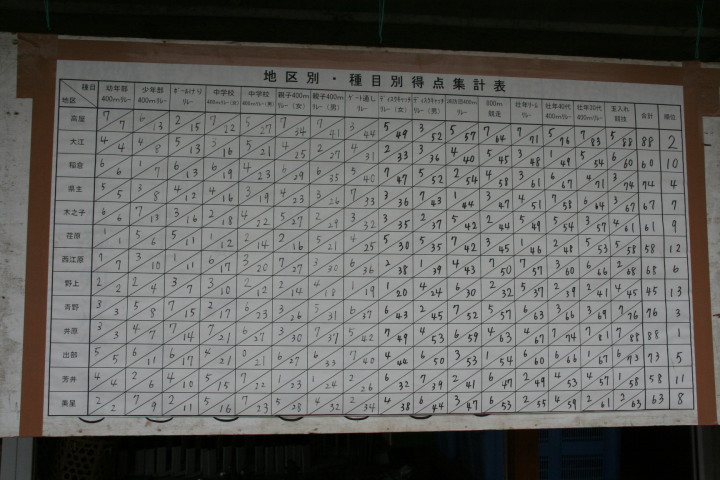 地区別・種目別得点集計表
種目 地区 幼年部400mリレー 少年部400mリレー ﾎﾞｰﾙけりリレー 中学校400mリレー(女) 中学校400mリレー(男) 親子400mリレー(女) 親子400mリレー(男) ゲート通しリレー ディスクキャッチリレー(女) ディスクキャッチリレー(男) 800m競走 壮年リレー 壮年40代400mリレー 壮年30代400mリレー 玉入れ競技 合計 順位
高屋 7/7 6/13 2/15 7/22 5/27 7/34 7/41 3/44 5/49 3/52 5/57 7/64 7/71 5/76 7/83 5/88 88 2
大江 4/4 4/8 5/13 3/16 5/21 4/25 2/27 4/31 2/33 3/36 4/40 5/45 3/48 1/49 5/54 6/60 60 10
稲倉 6/6 1/7 6/13 6/19 4/23 6/29 6/35 5/40 7/47 5/52 2/54 4/58 3/61 6/67 4/71 3/74 74 4
県主 5/5 3/8 4/12 4/16 3/19 4/23 3/26 7/33 3/36 7/43 1/44 3/47 4/51 7/58 6/64 3/67 67 7
木之子 6/6 7/13 3/16 2/18 4/22 5/27 2/29 3/32 3/35 2/37 5/42 2/44 5/49 5/54 3/57 4/61 61 9
花原 1/1 5/6 5/11 1/12 2/14 2/16 5/21 4/25 5/30 5/35 7/42 3/45 1/46 2/48 5/53 5/58 58 12
西江原 7/7 3/10 1/11 6/17 3/20 7/27 3/30 6/36 2/38 1/39 4/43 7/50 7/57 3/60 6/66 2/68 68 6
野上 2/2 2/4 3/7 3/10 2/12 2/14 4/18 1/19 1/20 4/24 6/30 2/32 5/37 2/39 2/41 4/45 45 13
青野 3/3 5/8 7/15 2/17 6/23 3/26 5/31 6/37 6/43 2/45 7/52 5/57 6/63 3/66 3/69 7/76 76 3
井原 3/3 4/7 7/14 7/21 6/27 3/30 7/37 5/42 7/49 4/53 6/59 4/63 4/67 7/74 7/81 7/88 88 1
出部 5/5 6/11 6/17 4/21 0/21 6/27 6/33 7/40 4/44 6/50 3/53 1/54 6/60 6/66 1/67 6/73 73 5
芳井 4/4 2/6 4/10 5/15 7/22 1/23 1/24 2/26 6/32 7/39 2/41 6/47 2/49 4/53 4/57 1/58 58 11
美星 2/2 7/9 2/11 5/16 7/23 5/28 4/32 2/34 4/38 6/44 3/47 6/53 2/55 4/59 2/61 2/63 63 8